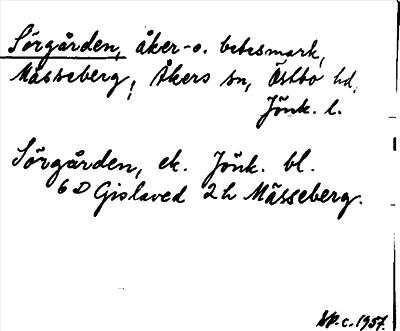 Sörgården, åker- o. betesmark,
Mässeberg, Åkers sn, Östbo hd,
Jönk. l.
Sörgården, ek. Jönk. bl.
6 D Gislaved 2 h Mässeberg.
c. 1957.